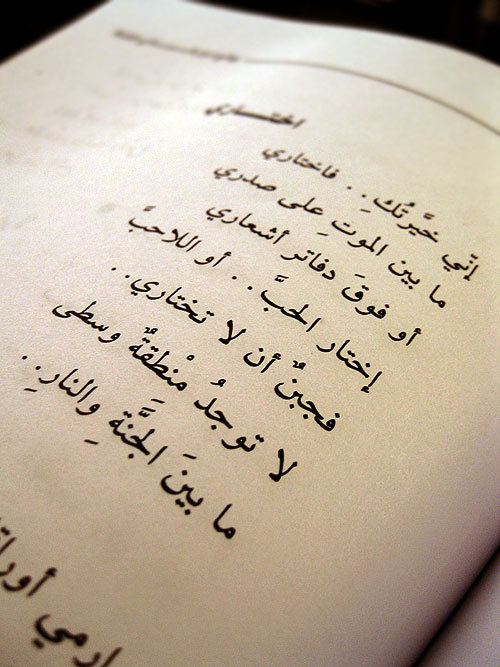 اختاري
إنّي خيَّرتُكِ.. فاختاري
ما بين الموتِ على صدري
أو فوقَ دفاتر أشعاري
إختار الحبَّ.. أو اللاحبَّ
فجبنٌ أن لا تختاري..
لا توجدُ مِنْطقةٌ وسطى
ما بينَ الجنَّةِ والنارِ..
ارمي أورا